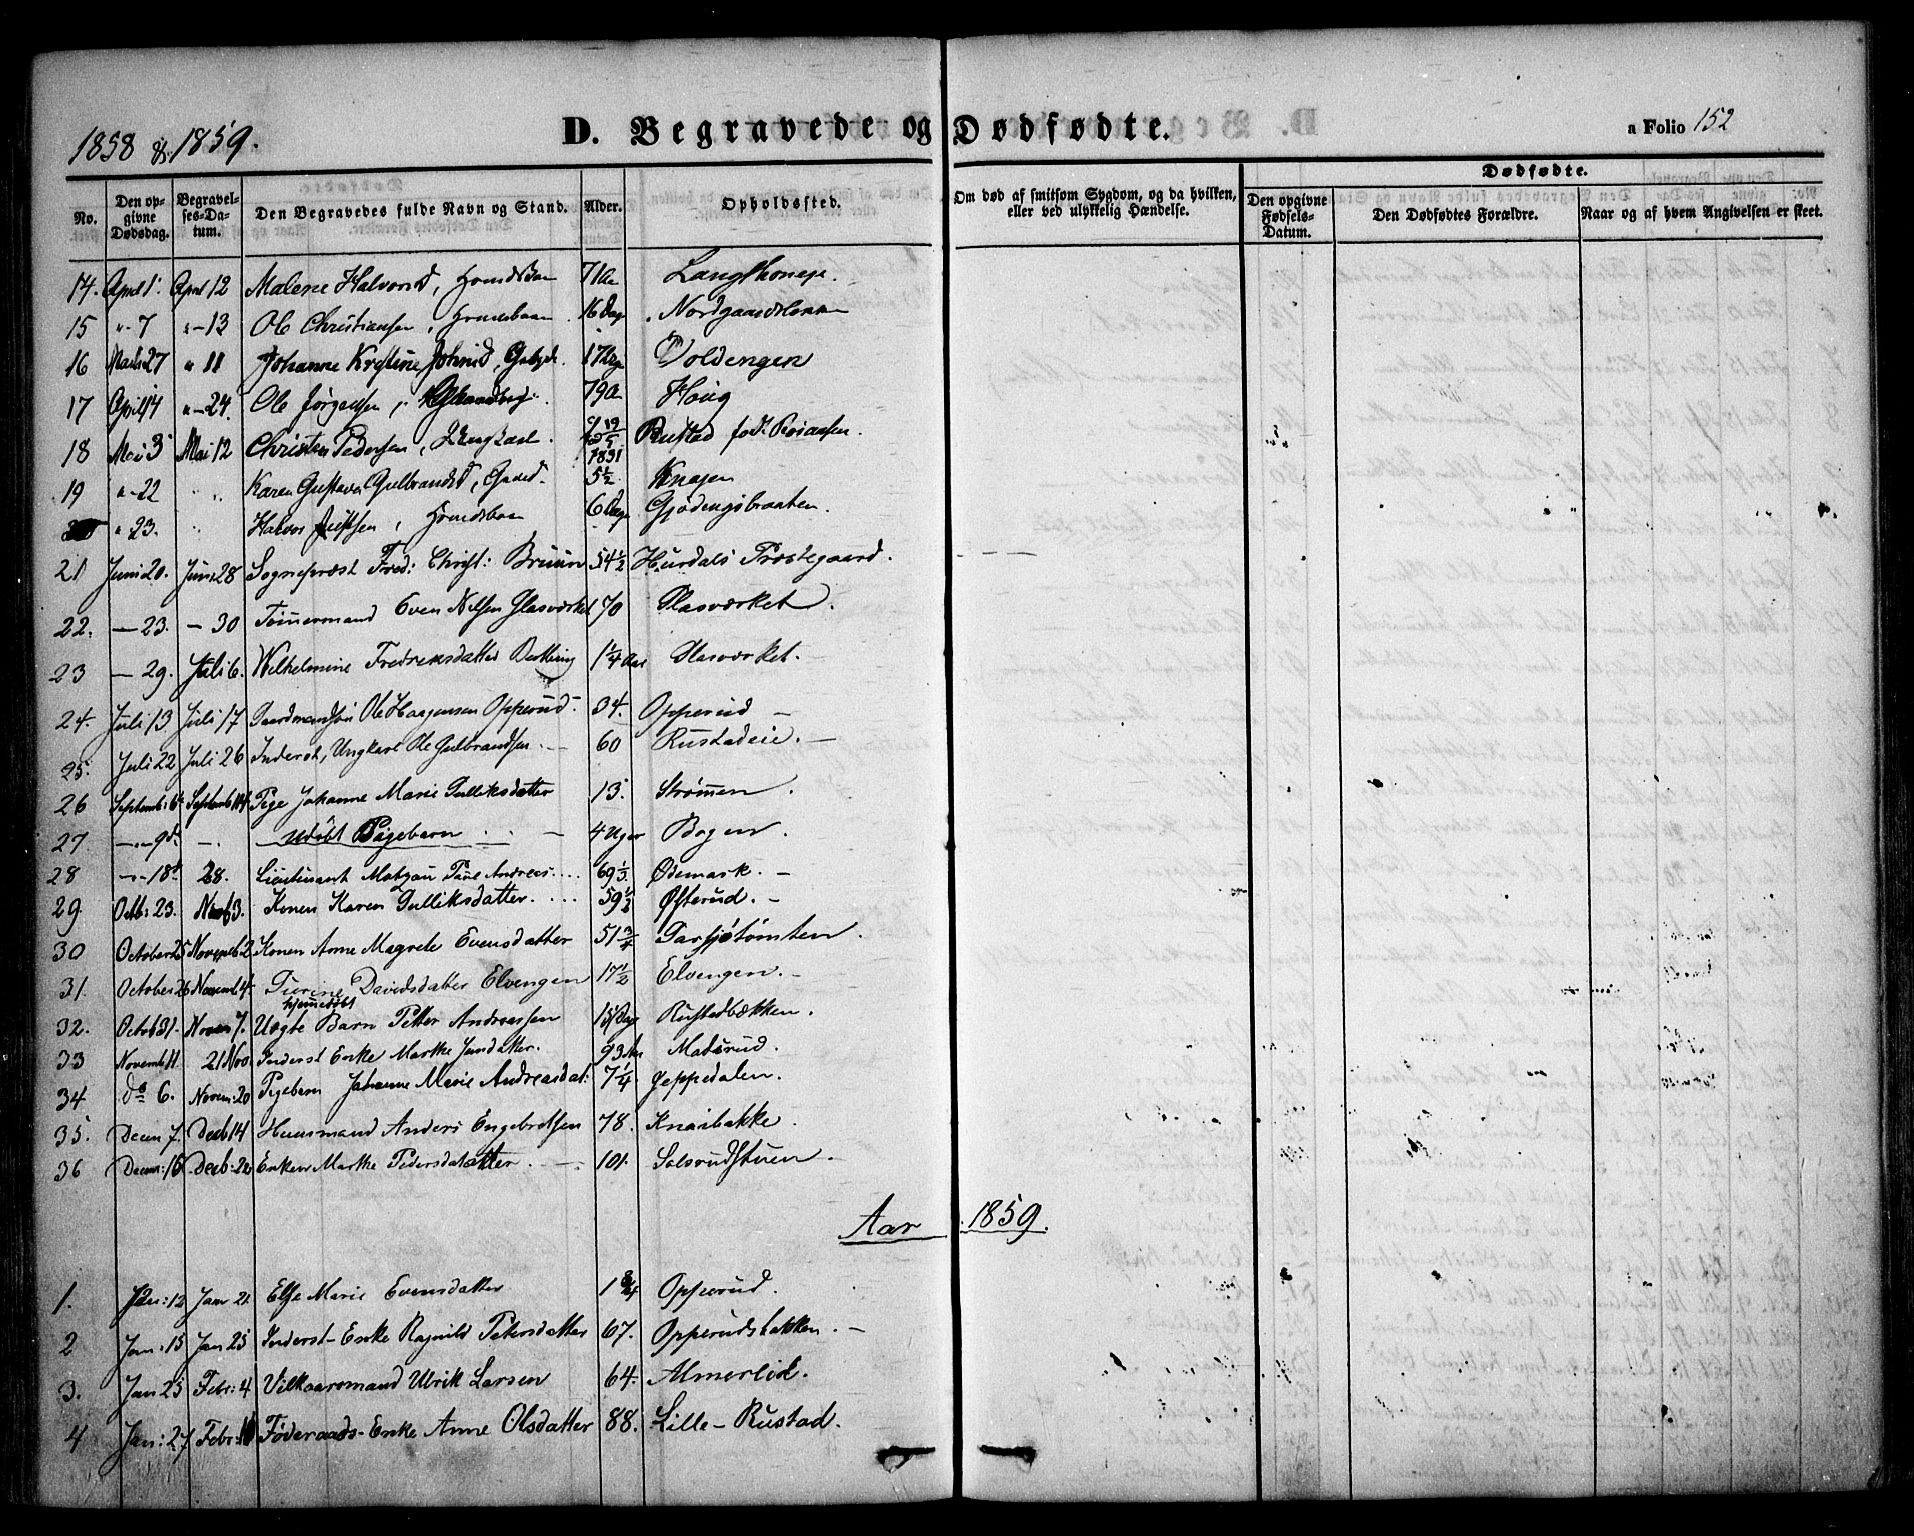 1858 & 1859.
D. Begravede og Dødfødte.
a Folio 152
No. Den opgivne Dødsdag. Begravelses-Datum. Den Begravedes fulde Navn og Stand. Alder. Opholdssted. Om død af smitsom Sygdom, og da hvilken, eller ved ulykkelig Hændelse. Dødfødte. Den opgivne Fødsels-Datum. Den Dødfødtes Forældre. Naar og af hvem Angivelsen er skeet.
14. April 1. April 12 Malene Halvorsd, 71 Aa
15 " 7 " 13 Ole Christiansen, 16 Dage
16 Marts 27 " 11 Johanne 17 Dage Voldengen
17 April 14 " 24. Ole Jørgensen, 79 a Houg
18 Mai 3 Mai 12 Christen Pedersen, 1831 Rustad
19 " 22 " Karen Gustava Gulbrandsd, 5½ Knajen
" 23. " Halvor 6 Dage Gjødingsbraaten
21 Juni 20. Juni 28 Sogneprest Fred: Christ: Bruun 54½ Hurdals Præstegaard.
22. — 23. — 30 Tømmermand Even Nilsen Glasværket 70 Glasværket.
23 — 29. Juli 6. Wilhelmine Fredriksdatter 1¼ Aar Glasværket.
24. Juli 13 Juli 17 Gaardmandssøn Ole Haagensen Opperud. 34. Opperud —
25. Juli 22 Juli 26 Inderst, Ungkarl Ole Gulbrandsen. — 60 Rustadeie. —
26 Septemb: 6 Septemb 14 Pige Johanne Marie Gulliksdatter 13. Strømmen.
27 — 9d. —. Udøbt Pigebarn — 4 Uger Bogen.
28 — 18d 28. Lieutenant Andreas 69⅓ Ødemark. —
29. Octb: 23. Novb 3. Konen Karen Gulliksdatter. 59½ Østerud. —
30 October 25 Novemb 2 Konen Anne Magrete Evensdatter 51¾ Garsjøtomten.
31. October 26 Novemb 4 Davidsdatter Elvengen 17½ Elvengen. —
hjemmedøbt
32. Octob 31. Novem 7. Uægte Barn Petter Andreassen 15 Dage Rustadbækken.
33 Novemb 11 21 Nov Inderst Enke Marthe Jensdatter. 93 Aar Matsrud.
34 do 6. Novem: 20 Pigebarn Johanne Marie Andreasdat: 7¼ Gjeppedalen.
35. Decem 7. Decb 14 Huusmand Anders Engebretsen 78. Knaibakke.
36 Decem: 16 Decb: 26 Enken Marthe Pedersdatter. — 101. Solsrudstuen —
Aar 1859.
1. Jan: 12 Jan 21. Else Marie Evensdatter 1¾ Opperud.
2 Jan: 15 Jan 25 Inderst-Enke Ragnild Petersdatter 67. Opperudsbakken. —
3. Jan 25 Febr: 4 Vilkaarsmand Ulrik Larsen 64. Almerlid.
4 Jan: 27 Febr: Føderaads-Enke Anne Olsdatter 88. Lille-Rustad.